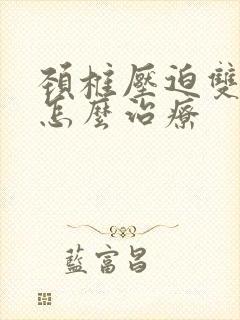 頸椎壓迫雙
怎麼治療
藍富昌